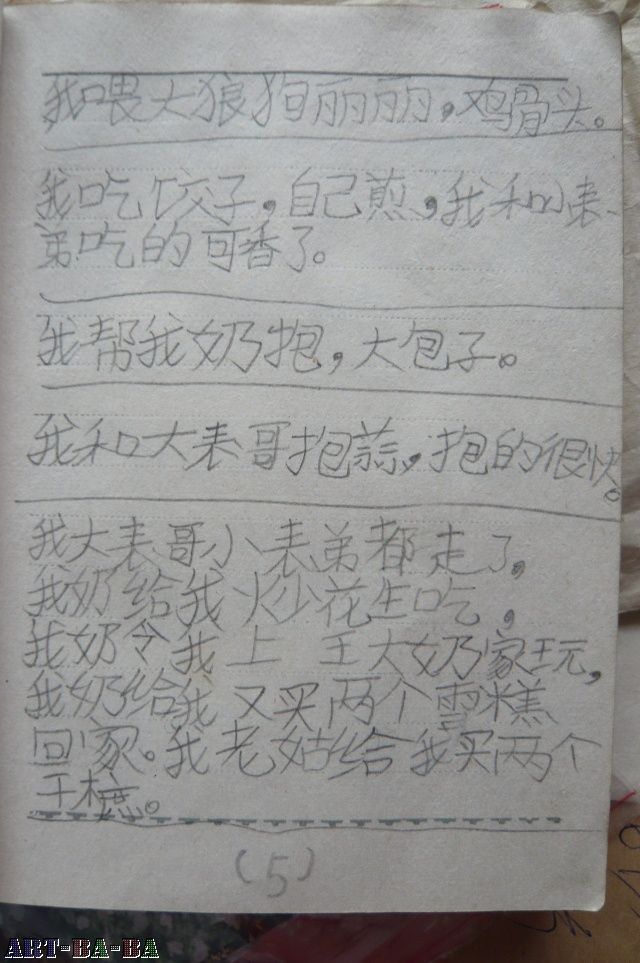 我喂大狼狗丽丽,鸡骨头。
我吃饺子,自己煎,我和小表
弟吃的可香了。
我帮我奶抱,大包子。
我和大表哥抱蒜,抱的很快。
我大表哥小表弟都走了,
我奶给我火少花生吃,
我奶令我上 王大奶家玩,
我奶给我又买两个雪糕
回家。我老姑给我买两个
干
(5)
ART-BA-BA